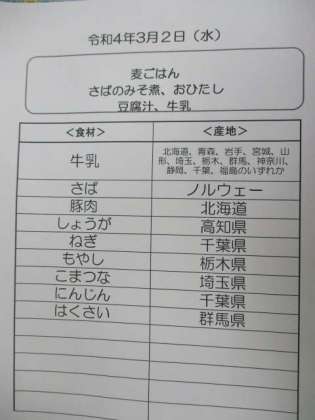 令和4年3月2日（水）
麦ごはん
さばのみそ煮、おひたし
豆腐汁、牛乳
＜食材＞ ＜産地＞
牛乳 北海道、青森、岩手、宮城、山
形、埼玉、栃木、群馬、神奈川、
静岡、千葉、福島のいずれか
さば ノルウェー
豚肉 北海道
しょうが 高知県
ねぎ 千葉県
もやし 栃木県
こまつな 埼玉県
にんじん 千葉県
はくさい 群馬県